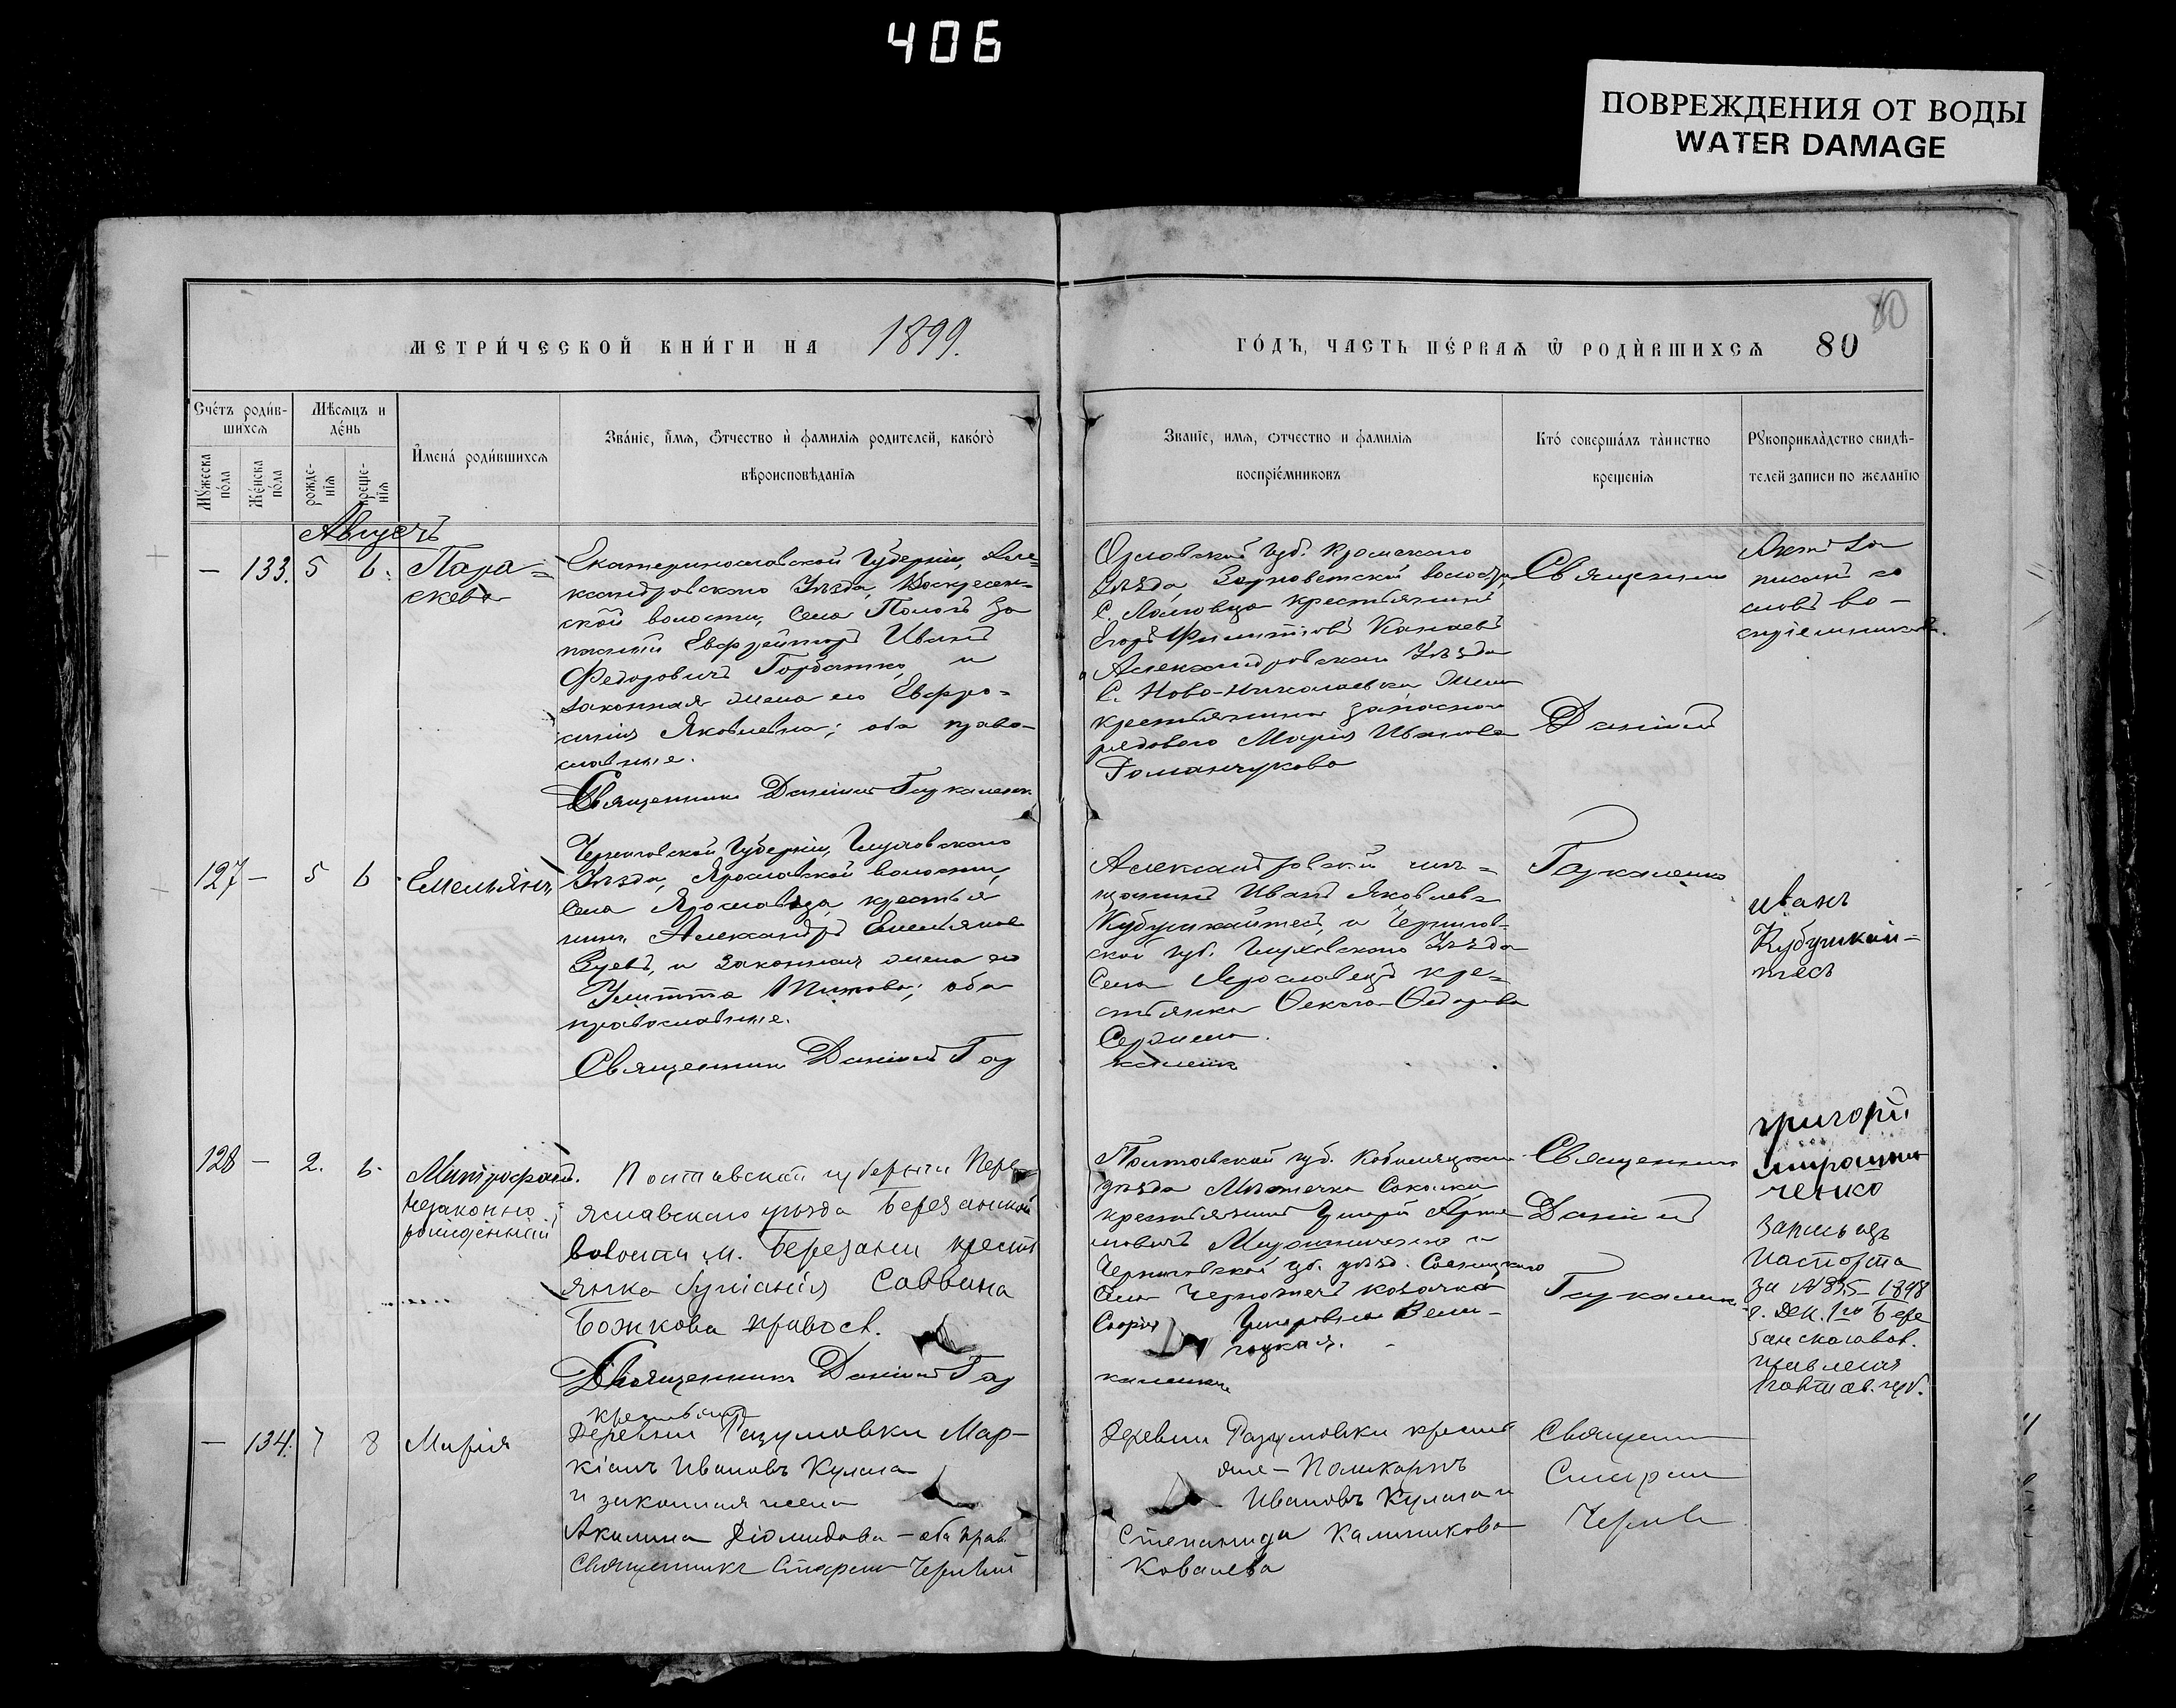 406
ПОВРЕЖДЕНИЯ ОТ ВОДЫ
WATER DAMAGE
80
МЕТРИ́ЧЕСКОЙ КНИ́ГИ НА 1899.
ГО́ДЪ, ЧАСТЬ ПЕ́РВАѦ Ѿ РОДИ́ВШИХСѦ 80
Сче́тъ роди́в-
шихсѧ
Мꙋ́жеска по́ла
Же́нска по́ла
Мѣ́сѧцъ и
де́нь
рожде-
нїѧ
креще-
нїѧ
И҆мена́ роди́вшихсѧ
Зва́нїе, и҆́мѧ, ѻ҆́тчество и҆ фамилїѧ родителей, како́гѡ
вѣроисповѣ́данїѧ
Званїе, имѧ, ѻтчество и фамилїѧ
воспрїе́мниковъ
Кто́ соверша́лъ та́инство
креще́нїѧ
Рꙋкоприкла́дство свидѣ-
телей записи по жела́нїю
Августъ
— 133. 5 6. Пара-
скева
Екатеринославской Губерніи, Алек-
сандровскаго Уѣзда, Воскресен-
ской волости, Села Пологъ За
пасный Ефрейторъ Иванъ
Федоровичъ Горбатко, и
законная жена его Евфро-
синія Яковлевна; оба право-
славные.
Священникъ Даніилъ Гаукаленко
Орловской губ. Кромскаго
Уѣзда волости
С. крестьянинъ
Егоръ Филипповъ Канаевъ
и Александровскаго Уѣзда
С. Ново-Николаевки жена
крестьянина запаснаго
рядового Марія Иванова
Романчукова
Священникъ
Даніилъ
Гаукаленко
Актъ за
писанъ со
словъ во-
спріемниковъ.
127 — 5 6. Емельянъ
Черниговской Губерніи, Глуховского
Уѣзда, Ярославской волости,
Села Ярославца, крестья
нинъ Александръ Емельяновъ
Зуевъ, и законная жена его
Улитта оба
православные.
Священникъ Даніилъ Гау
Александровскій мѣ-
щанинъ Иванъ Яковлевъ
Кубушкайтесъ, и Чернигов-
ской губ. Глуховского Уѣзда
Села Ярославецъ кре-
стьянка Ѳекла Ѳедорова
каленко
иванъ
Кубушкай-
тесъ
128 — 2. 6. Митрофанъ.
незаконно
рожденный
Полтавской губерніи Пере
яславскаго уѣзда Березанской
волости м. Березани крестъ
янка Саввина
Божкова правосл.
Священникъ Даніилъ Гау
Полтавской губ. Кобылякскаго
уѣзда Мѣстечка Соколки
крестьянинъ Григорій
Мирошниченко и
Черниговской губ. уѣзд. Сосницкаго
Села козачка
Софія Григорьева Вели-
гоцкая.
каленко
Священникъ
Даніилъ
Гаукаленко
григорій
мирошни
ченко
Запись изъ
паспорта
за № 835 1898
г. Дек. 1го Бере
занскаго вол.
правленія
Полтав. губ.
— 134. 7 8 Марія
крестьянинъ
Деревни Разумовки Мар-
кіанъ Ивановъ Кулага
и законная жена
Акилина Діомидова — оба прав.
Священникъ Спиридонъ
деревни Разумовки крестья
не — Поликарпъ
Ивановъ Кулага и
Степанида Калиникова
Ковалева
Священ